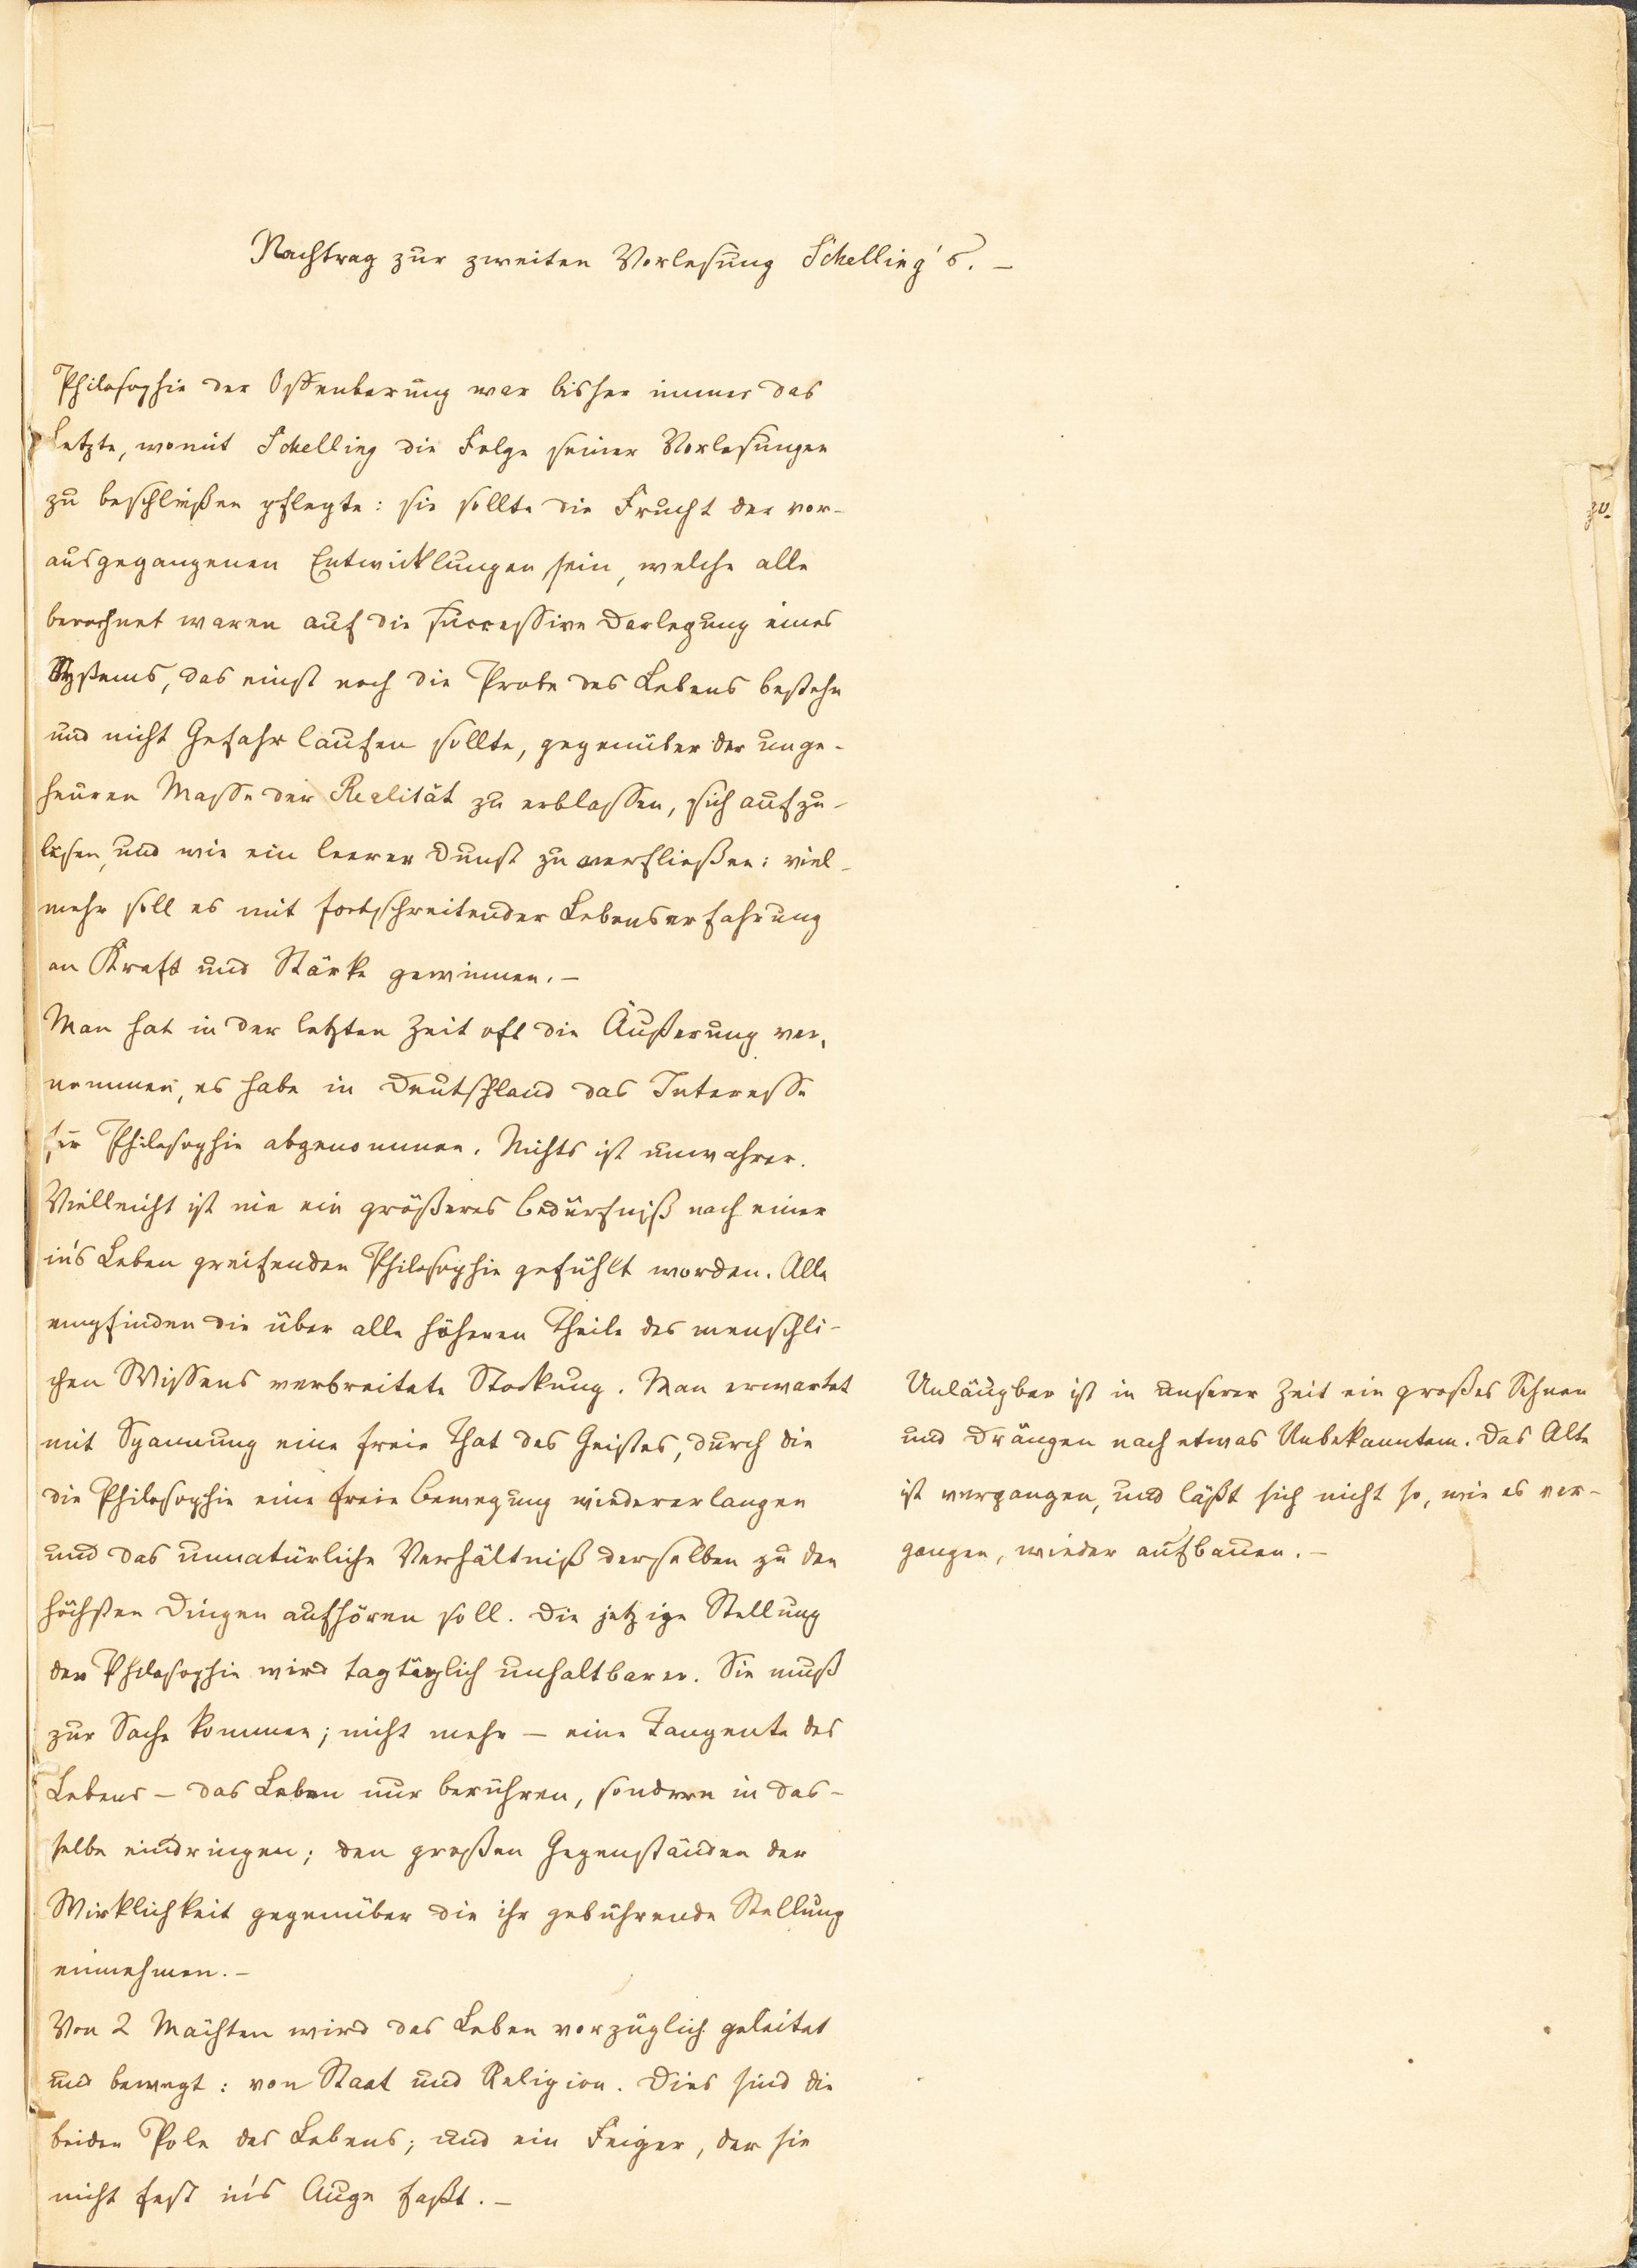 Nachtrag zur zweiten Vorlesung Schelling's. –
Philosophie der Offenbarung war bisher immer das
Letzte, womit Schelling die Folge seiner Vorlesungen
zu beschließen pflegte: sie sollte die Frucht der vor-
ausgegangenen Entwicklungen sein, welche alle
berechnet waren auf die successive Darlegung eines
Systems, das einst noch die Probe des Lebens bestehn
und nicht Gefahr laufen sollte, gegenüber der unge-
heuren Masse der Realität zu erblassen, sich aufzu-
lösen, und wie ein leerer Dunst zu verfließen: viel-
mehr soll es mit fortschreitender Lebenserfahrung
an Kraft und Stärke gewinnen. –
Man hat in der letzten Zeit oft die Äußerung ver-
nommen, es habe in Deutschland das Interesse
für Philosophie abgenommen. Nichts ist unwahrer.
Vielleicht ist nie ein größeres Bedürfniß nach einer
in's Leben greifenden Philosophie gefühlt worden. Alle
empfinden die über alle höheren Theile des menschli-
chen Wissens verbreitete Stockung. Man erwartet
mit Spannung eine freie That des Geistes, durch die
die Philosophie eine freie Bewegung wiedererlangen
und das unnatürliche Verhältniß derselben zu den
höchsten Dingen aufhören soll. Die jetzige Stellung
der Philosophie wird tagtäglich unhaltbarer. Sie muß
zur Sache kommen; nicht mehr – eine Tangente des
Lebens – das Leben nur berühren, sondern in das-
selbe eindringen; den großen Gegenständen der
Wirklichkeit gegenüber die ihr gebührende Stellung
einnehmen. –
Von 2 Mächten wird das Leben vorzüglich geleitet
und bewegt: von Staat und Religion. Dies sind die
beiden Pole des Lebens; und ein Feiger, der sie
nicht fest in's Auge faßt. –
Unläugbar ist in unserer Zeit ein großes Sehnen
und Drängen nach etwas Unbekanntem. Das Alte
ist vergangen, und läßt sich nicht so, wie es ver-
gangen, wieder aufbauen. –